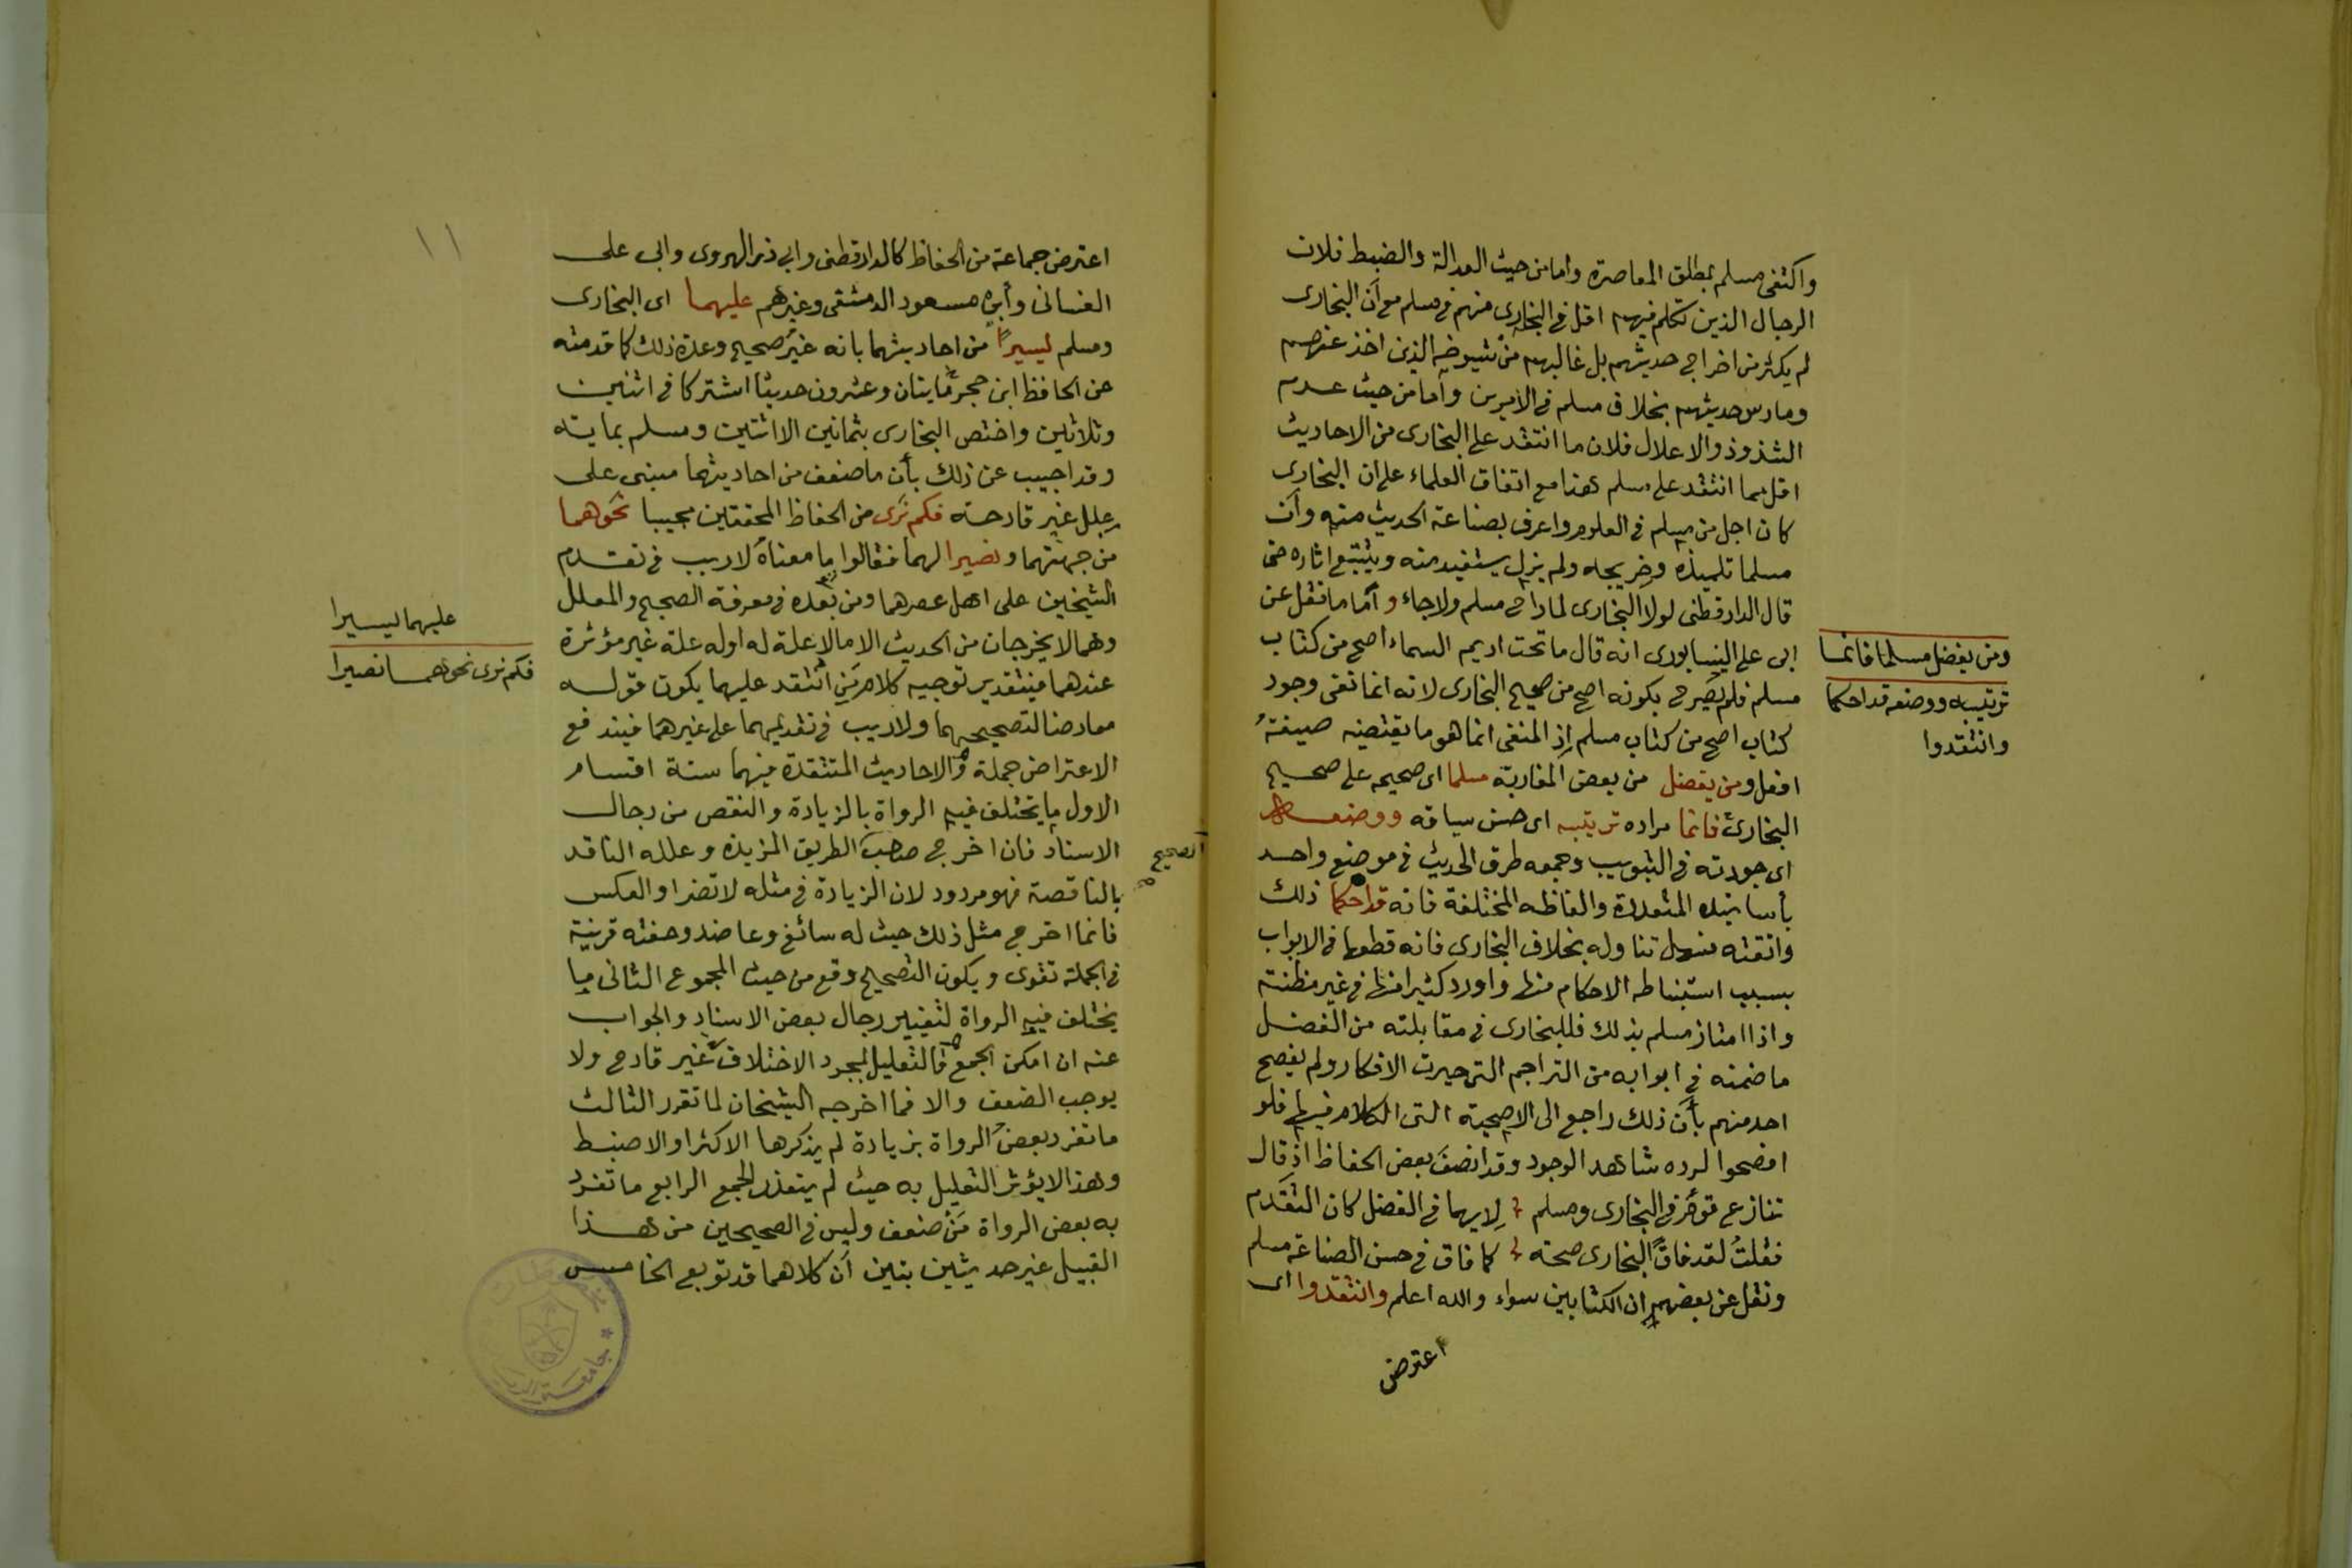 واكتفى مسلم بمطلق المعاصرة واما من حيث العدالة والضبط فلان
الرجال الذين تكلم فيهم اقل في البخارى منهم في مسلم مع أن البخارى
لم يكثر من اخراج حديثهم بل غالبهم من شيوخه الذين اخذ عنهم
ومارس حديثهم بخلاف مسلم في الأمرين وأما من حيث عدم
الشذوذ والاعلال فلان ما انتقد على البخارى من الاحاديث
اقل مما انتقد على مسلم هذا مع اتفاق العلماء على ان البخارى
كان اجل من مسلم في العلوم واعرف بصناعة الحديث منه وأن
مسلما تلميذه وخريجه ولم يزل يستفيد منه ويتتبع اثاره حتى
قال الدارقطنى لولا البخارى لما راح مسلم ولا جاء وأما ما نقل عن
ابى على النيسابورى انه قال ما تحت اديم السماء اصح من كتاب
مسلم فلم يصرح بكونه اصح من صحيح البخارى لانه انما نفى وجود
كتاب اصح من كتاب مسلم إذ المنفى انما هو ما يقتضيه صيغة
افعل ومن يفضل من بعض المغاربة مسلما اى صحيحه على صحيح
البخارى فانما مراده ترتيبه اى حسن سياقه ووضعه
اى جودته في التبويب وجمعه طرق الحديث في موضع واحد
بأسانيده المتعددة والفاظه المختلفة فانه قد احكما ذلك
واتقنه فسهل تناوله بخلاف البخارى فانه قطعها في الابواب
بسبب استنباطه الاحكام منها واورد كثيرا منها في غير مظنته
واذا امتاز مسلم بذلك فللبخارى في مقابلته من الفضل
ما ضمنه في ابوابه من التراجم التى حيرت الافكار ولم يفصح
احد منهم بأن ذلك راجع الى الاصحية التى الكلام فيها فلو
افصحوا لرده شاهد الوجود وقد انصف بعض الحفاظ اذ قال
تنازع قوم في البخارى ومسلم لايهما في الفضل كان التقدم
فقلت لقد فاق البخارى صحة كما فاق في حسن الصناعة مسلم
ونقل عن بعضهم ان الكتابين سواء والله اعلم وانتقدوا اى
اعترض
ومن يفضل مسلما فانما
ترتيبه ووضعه قد احكما
وانتقدوا
١١
اعترض جماعة من الحفاظ كالدارقطنى وابى ذر الهروى وابى على
الغسانى وأبى مسعود الدمشقى وغيرهم عليهما اى البخارى
ومسلم يسيرا من احاديثهما بانه غير صحيح وعدة ذلك كما قدمته
عن الحافظ ابن حجر مايتان وعشرون حديثا اشتركا في اثنين
وثلاثين واختص البخارى بثمانين الا اثنتين ومسلم بماية
وقد اجيب عن ذلك بأن ما ضعف من احاديثهما مبنى على
علل غير قادحة فكم ترى من الحفاظ المحققين مجيبا نحوهما
من جهتهما ونصيرا لهما فقالوا ما معناه لا ريب في تقدم
الشيخين على اهل عصرهما ومن بعده في معرفة الصحيح والمعلل
وهما لا يخرجان من الحديث الا ما لا علة له او له علة غير مؤثرة
عندهما فبتقدير توجيه كلام من انتقد عليهما يكون قوله
معارضا لتصحيحهما ولا ريب في تقديمهما على غيرهما فيندفع
الاعتراض جملة والاحاديث المنتقدة فيهما ستة اقسام
الاول ما يختلف فيه الرواة بالزيادة والنقص من رجال
الاسناد فان اخرج صاحب الطريق المزيدة وعلله الناقد
بالناقصة فهو مردود لان الزيادة في مثله لا تضر او العكس
فانما اخرج مثل ذلك حيث له سائغ وعاضد وحفته قرينة
في الجملة تقوى ويكون التصحيح وقع من حيث المجموع الثانى ما
يختلف فيه الرواة لتغيير رجال بعض الاسناد والجواب
عنه ان امكن الجمع فالتعليل بمجرد الاختلاف غير قادح ولا
يوجب الضعف والا فما اخرجه الشيخان لما تقرر الثالث
ما تفرد بعض الرواة بزيادة لم يذكرها الاكثر او الاضبط
وهذا لا يؤثر التعليل به حيث لم يتعذر الجمع الرابع ما تفرد
به بعض الرواة من ضعف وليس في الصحيحين من هذا
القبيل غير حديثين بتين أن كلاهما قد توبع الخامس
الصحيح
عليهما يسيرا
فكم نرى نحوهما نصيرا